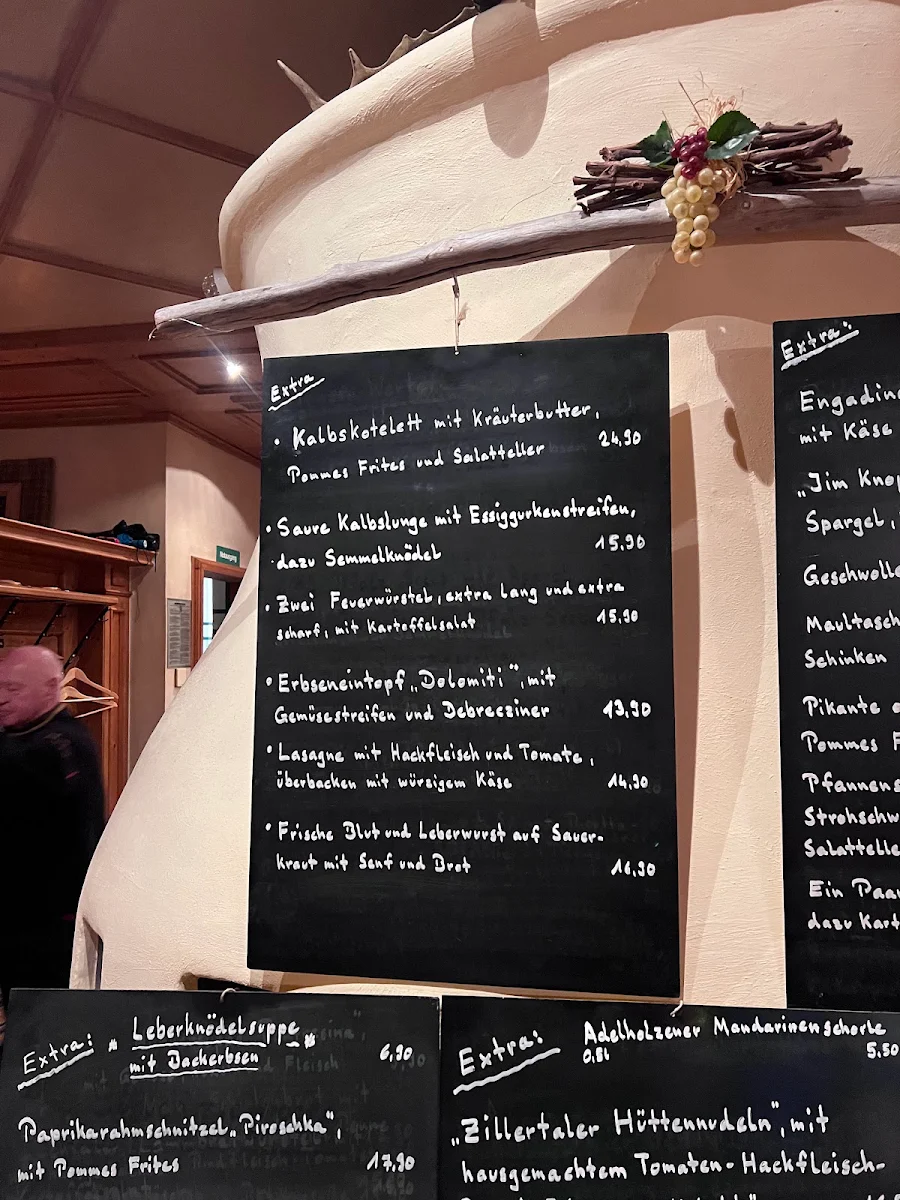 Extra
• Kalbskotelett mit Kräuterbutter,
Pommes Frites und Salatteller 24,90
• Saure Kalbslunge mit Essiggurkenstreifen,
dazu Semmelknödel 15,90
• Zwei Feuerwürstel, extra lang und extra
scharf, mit Kartoffelsalat 15,90
• Erbseneintopf „Dolomiti“, mit
Gemüsestreifen und Debrecziner 13,90
• Lasagne mit Hackfleisch und Tomate,
überbacken mit würzigem Käse 14,90
• Frische Blut und Leberwurst auf Sauer-
kraut mit Senf und Brot 16,90
Extra:
mit Käse
Spargel,
Schinken
Pikante
Pommes
Ein
dazu
Extra: * Leberknödelsuppe *
mit Backerbsen 6,90
Paprikarahmschnitzel „Piroschka“,
mit Pommes Frites 17,90
Extra: Adelholzener Mandarinenschorle
0,5l 5,50
„Zillertaler Hüttennudeln“, mit
hausgemachtem Tomaten-Hackfleisch-